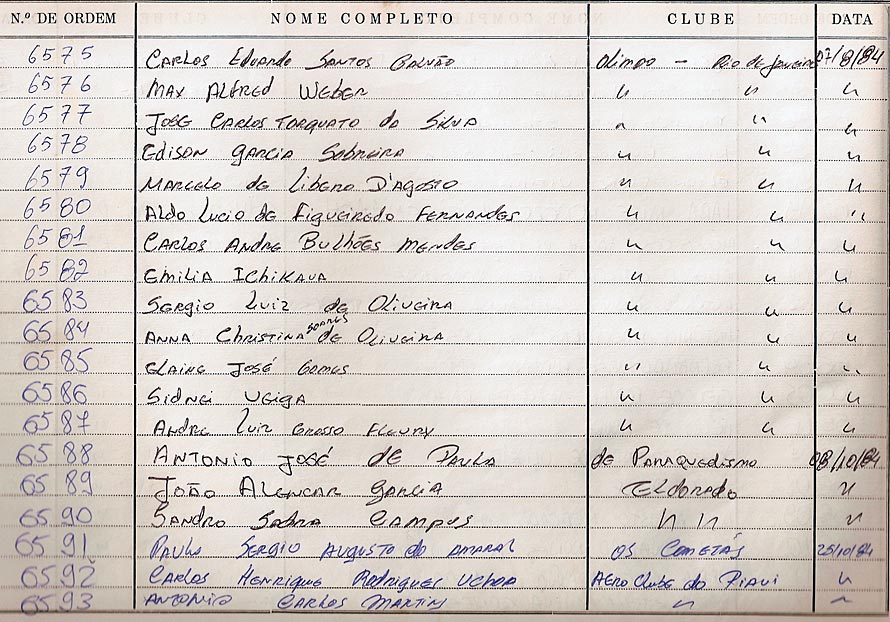 N.º DE ORDEM NOME COMPLETO CLUBE DATA
6575 Carlos Eduardo Santos Galvão Olimpo - Rio de Janeiro 07/8/84
6576 Max Alfred Weber " " "
6577 José Carlos Torquato da Silva " " "
6578 Edison Garcia Sobreira " " "
6579 Marcelo de Libero D'Agosto " " "
6580 Aldo Lucio de Figueiredo Fernandes " " "
6581 Carlos Andre Bulhões Mendes " " "
6582 Emilia Ichikava " " "
6583 Sergio Luiz de Oliveira " " "
6584 Anna Christina Soares de Oliveira " " "
6585 Elaine José Gomes " " "
6586 Sidnei Veiga " " "
6587 Andre Luiz Grosso Fleury " " "
6588 Antonio José de Paula de Paraquedismo 08/10/84
6589 João Alencar Garcia Eldorado "
6590 Sandro Campus " " "
6591 Paulo Sergio Augusto do Amaral Os Cometas 25/10/84
6592 Carlos Henrique Rodrigues Uchoa Aero Clube do Piaui "
6593 Antonio Carlos Martins " "